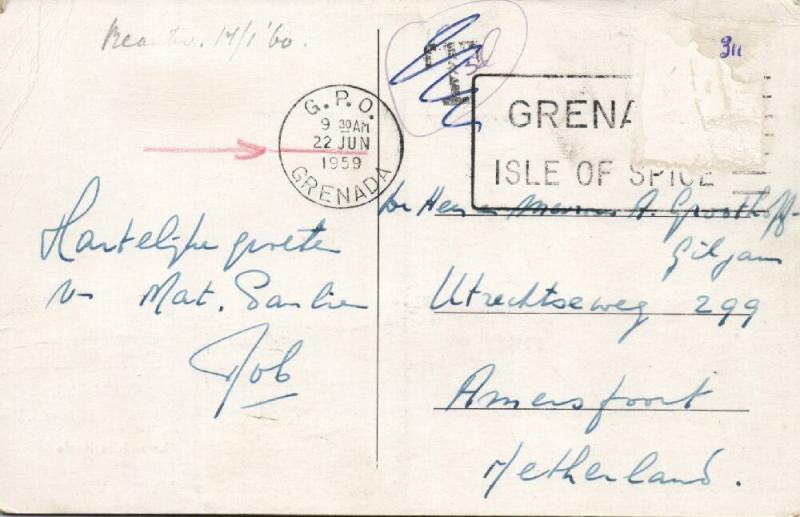 14/1 '60.
G.P.O.
9 30AM
22 JUN
1959
GRENADA
T
3d
311
GRENA
ISLE OF SPICE
Hartelijke groeten
v. Mat.
Job
De Heer en Mevrouw A. Groothoff-
Giljam
Utrechtseweg 299
Amersfoort
Netherland.